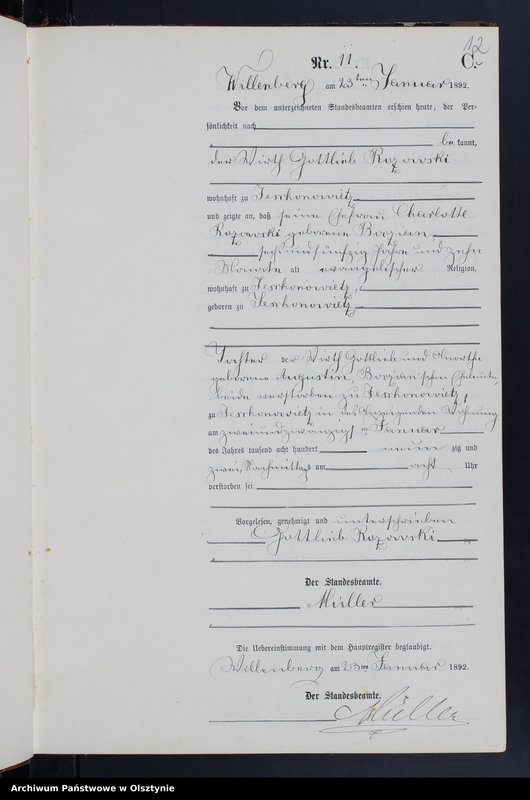 12
Nr. 11. C.
Willenberg am 23ten Januar 1892.
Vor dem unterzeichneten Standesbeamten erschien heute, der Per-
sönlichkeit nach
be kannt,
der Wirth Gottlieb Rozowski
wohnhaft zu Jeschonowietz
und zeigte an, daß seine Ehefrau Charlotte
Rozowski geborene Borzian
sechsundfünfzig Jahre und zehn
Monate alt evangelischer Religion,
wohnhaft zu Jeschonowietz,
geboren zu Jeschonowietz,
Tochter der Wirth Gottlieb und
geborene Augustin, Borzian'schen Eheleute,
beide verstorben zu Jeschonowietz,
zu Jeschonowietz in des Anzeigenden Wohnung
am zweiundzwanzigsten Januar
des Jahres tausend acht hundert neun zig und
zwei, Nachmittags um acht Uhr
verstorben sei
Vorgelesen, genehmigt und unterschrieben
Gottlieb Rozowski
Der Standesbeamte.
Müller
Die Uebereinstimmung mit dem Hauptregister beglaubigt.
Willenberg am 23ten Januar 1892.
Der Standesbeamte.
Müller
Archiwum Państwowe w Olsztynie